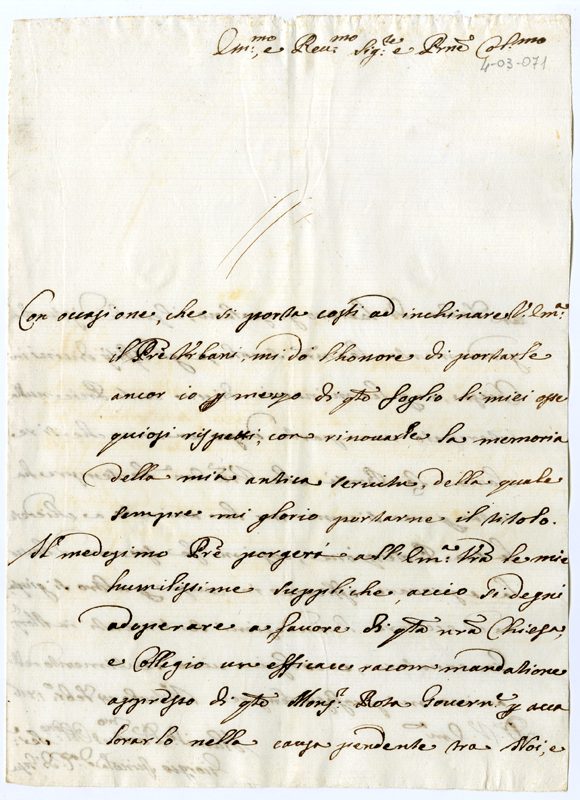 Em:mo, e Reu:mo Sig:re e Prne Col:mo
4-03-071
Con occasione, che si porta costì ad inchinare V. Em:a
il Prè Vrbani, mi dò l'honore di portarle
ancor io p mezzo di qto foglio li miei osse
quiosi rispetti, con rinouarle la memoria
della mia antica seruitù, della quale
sempre mi glorio portarne il titolo.
Il medesimo Prè porgerà all'Em:a Vra le mie
humilissime suppliche, acciò si degni
adoperare a fauore di qta nra Chiesa,
e Collegio un'efficace racommandatione
appresso di qto Monsr. Rota Governre p aua
lorarlo nella causa pendente tra Noi, e